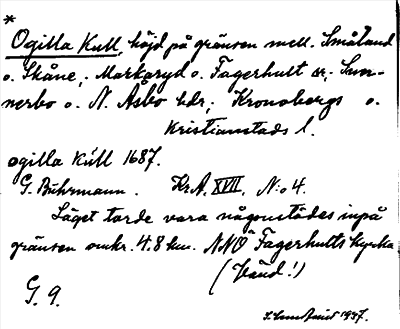 *
Ogilla Kull, höjd på gränsen mell. Småland
o. Skåne, Markaryd o. Fagerhult sr, Sun-
nerbo o. N. Åsbo hdr, Kronobergs o.
Kristianstads l.
ogilla kúll 1687.
G. Buhrmann. Kr.A. XVII, N:o 4.
Läget torde vara någonstädes inpå
gränsen omkr. 4.8 km. NNO Fagerhults kyrka
(Vänd!)
G. 9.
1937.